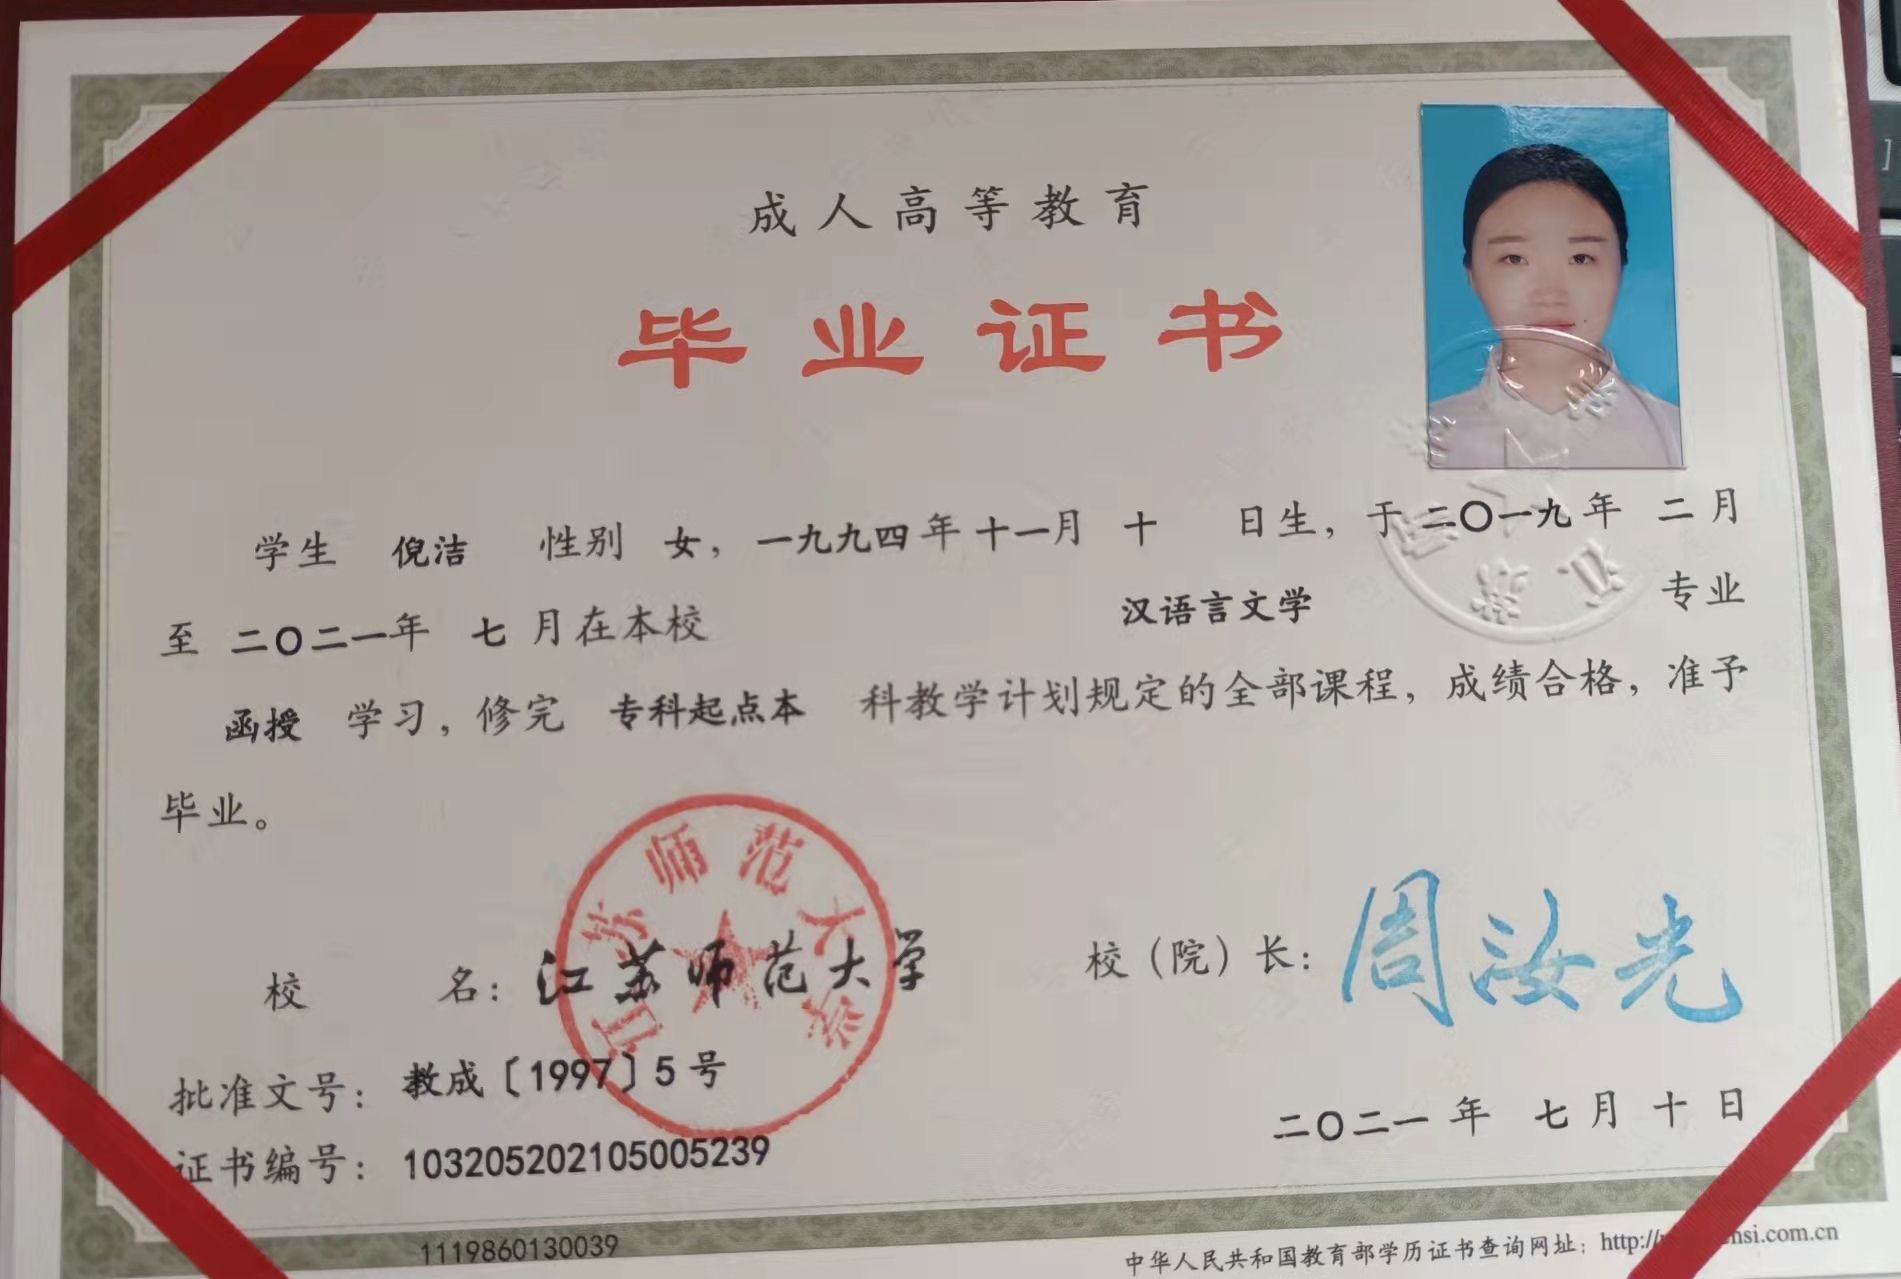 成人高等教育
毕业证书
学生 倪洁 性别 女，一九九四年十一月 十 日生，于二〇一九年 二月
至 二〇二一年 七 月在本校 汉语言文学 专业
函授 学习，修完 专科起点本 科教学计划规定的全部课程，成绩合格，准予
毕业。
江苏师范大学
校 名：江苏师范大学 校（院）长：周汝光
批准文号：教成〔1997〕5号
二〇二一年 七月十日
证书编号：103205202105005239
1119860130039
中华人民共和国教育部学历证书查询网址：http://
si.com.cn